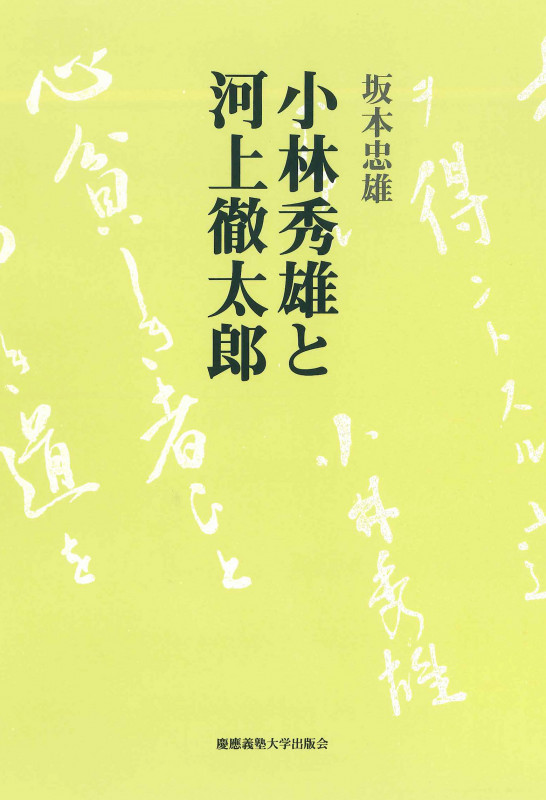 坂本忠雄
小林秀雄と
河上徹太郎
得ントスル
小林秀雄
心貧しき者ひと
道を
慶應義塾大学出版会